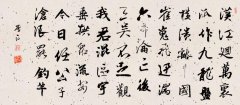 漢江迴萬里
派作九龍盤
橫潰豁中國
崔嵬飛迅湍
六帝淪亡後
三吳不足觀
我君混區宇
垂拱衆流安
今日任公子
滄浪罷釣竿